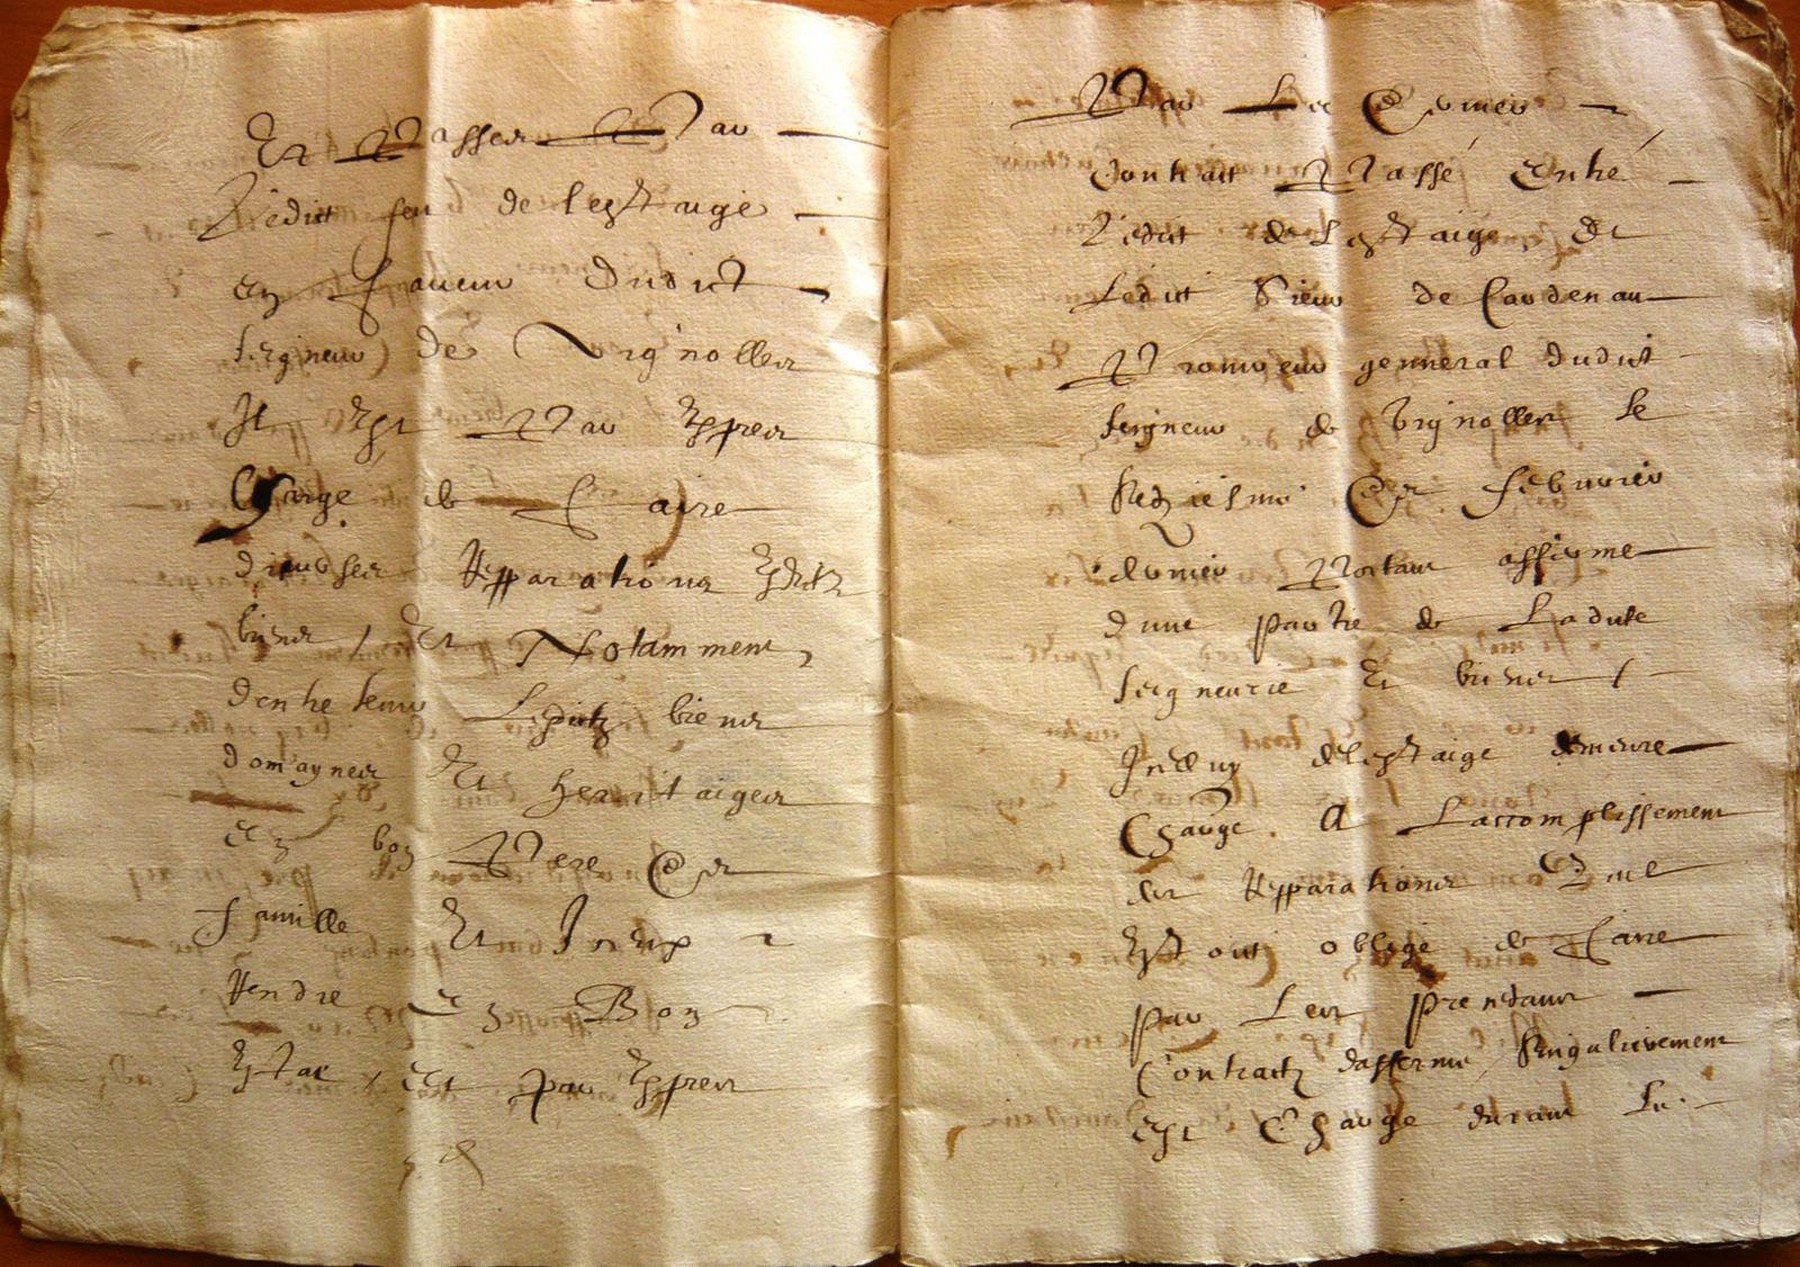 Et Passer Par
Ledict feu de lestaige
en faveur dudict
seigneur de Vignolles
Il Est Par Expres
Charge de Faire
diverses Repparations Esditz
biens, Et Notamment,
dentretenir Lesditz biens
domaynes Et heritaiges
en bon Pere de
famille Et Iceux
Rendre en Bon
Estat, Et par Expres
Par Le dernier
Contract Passé Entre
Ledict de Lestaige, Et
Ledict Sieur de Caudenau
Procureur general dudict
seigneur de Vignolles Le
Sedziesme de febvrier
dernier Portant afferme
dune partie de Ladite
seigneurie Et biens
Icelluy de lestaige demeure
Charge. A Laccomplissement
des Repparations Que
Estoit oblige de Faire
par Les precedans
Contractz dafferme, Singulierement
est Charge durant La